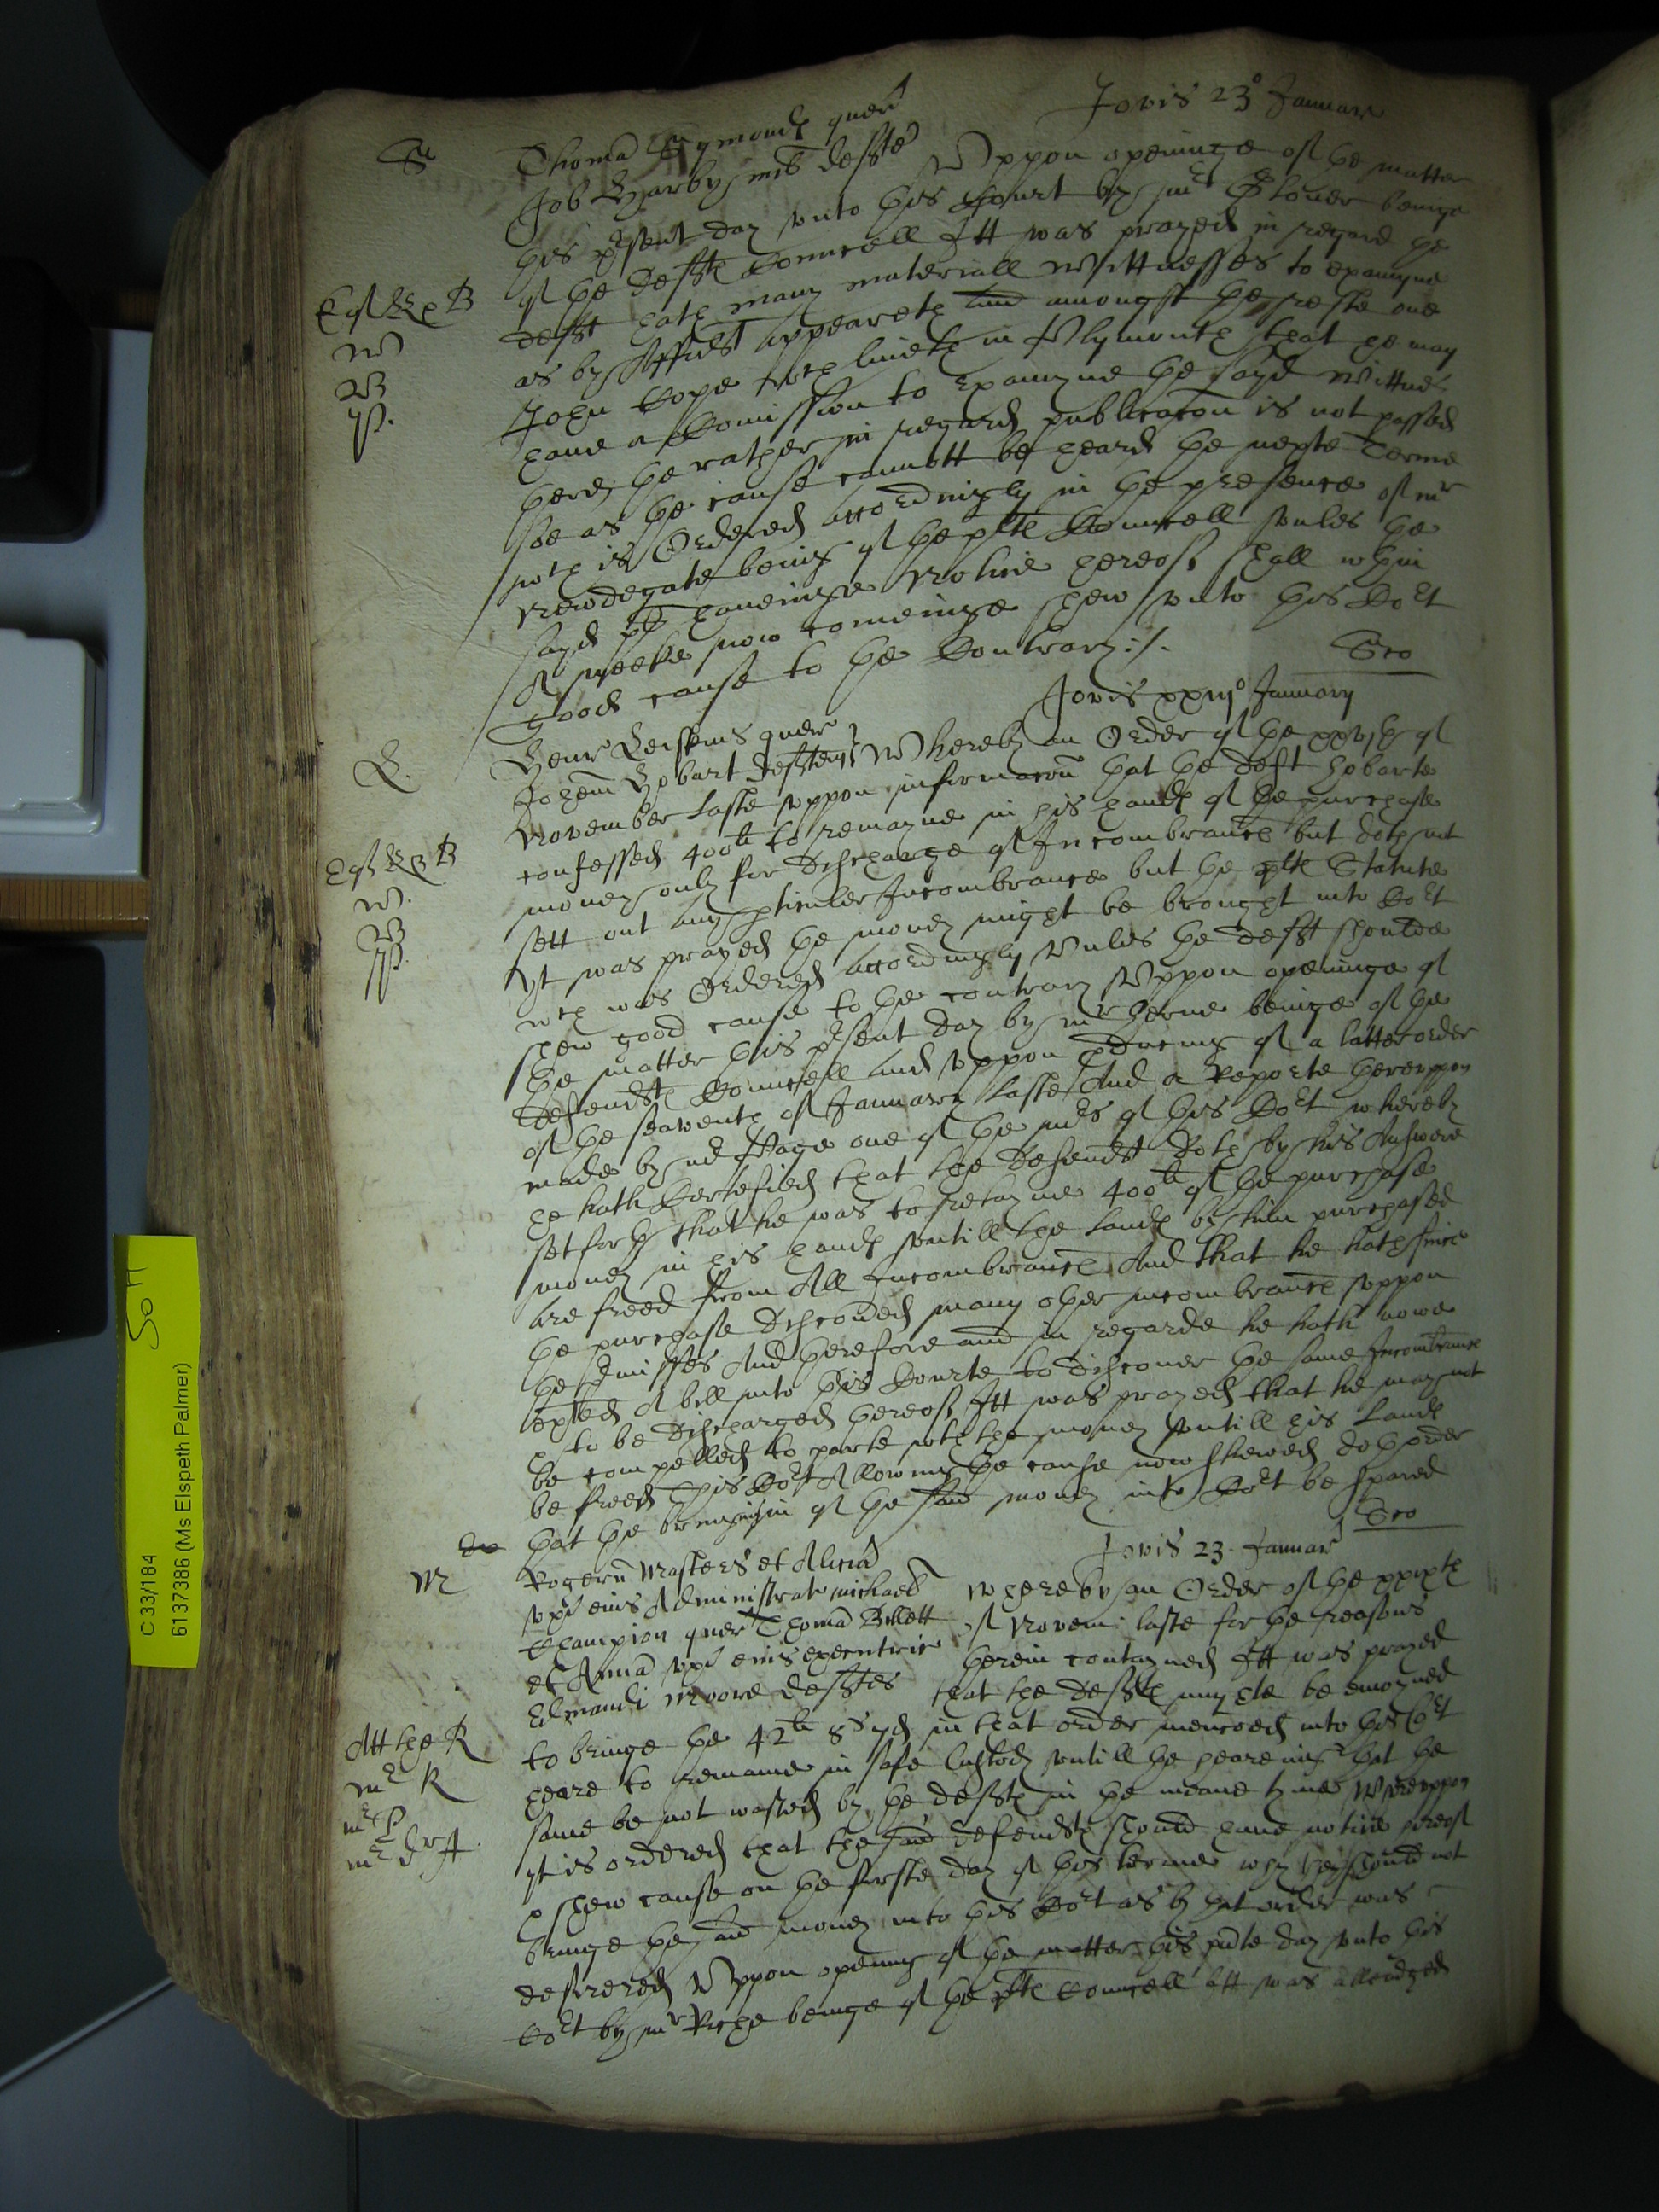 Jovis 23º Januar
S
Thoma Symondℯ quer
Job Harby mil defte Uppon openinge of the matter
this pñsent day unto this Court by mr Glover beinge
of the deftℯ Councell Itt was prayed in regard the
deft hath many materiall Wittnesses to examyne
as by Affidt appeareth and amongst the reste one
John Cope wch liveth in Plymouth that he may
have a Comission to examyne the sayd Wittnes
there the rather in regard publicacon is not passed
soe as the cause cannott be heard the nexte Terme
wch is Ordered accordingly in the presence of mr
Crewdegate being of the pltℯ Councell unles the
sayd plt haveinge Notice hereof shall wthin
A weeke now comeinge shew unto this Cort
good cause to the Contrary:/.
W
W
P.
Jovis xxiijº January
Henr quer
Johem Hobart deftem Whereby an Order of the xxvjth of
November laste uppon informacon that the deft Hobarte
confessed 400li to remayne in his handℯ of the purchase
money only for discharge of Incombrancℯ but doth not
sett out any pticuler Incombrance but the pltℯ Statute
Yt was prayed the money might be brought into Cort
wch was Ordered accordingly Unles the deft shoulde
shew good cause to the contrary Uppon openinge of
the matter this pñsent day by mr Herne beinge of the
Defendtℯ Councell and uppon pducing of a latter order
of the seaventh of January laste And a Reporte thereuppon
made by mr Page one of the mrs of this Cort whereby
he hath Certefied that the Defendt doth by his Answere
set forth that he was to retayne 400li of the purchase
money in his handℯ untill the landℯ by him purchased
are freed from All Incombrancℯ And that he hath since
the purchase discoůed many other incombrancℯ uppon
the pmisses And therefore and in regarde he hath nowe
A bill into this Courte to discover the same Incombrance
& to be discharged thereof, Itt was prayed that he may not
be compelled to parte wth the money untill his landℯ
be freed This Cort Allowing the cause now shewed doth order
that the bringing in of the said money into Cort be spared
Jovis 23. Januar
M
Rogerũ Masters et Alicia
uxr eius Administrat michael Whereby an Order of the xxixth
Champion quer Thoma Billett of Novem: laste for the reasons
et Anna uxr eius executric therein contayned Itt was prayed
Edmundi Moore deftes that the deftℯ might be enioyned
to bringe the 42li 8s 7d in that order menconed into this Cort
heare to remaine in safe Custody untill the hearing that the
same be not wasted by the deftℯ in the meane tyme Whereuppon
yt is ordered that the said defendtℯ should have notice hereof
& shew cause on the firste day of this terme why they should not
bringe the said money into this Cort as by that order was
desired Uppon opening of the matter this pñte day unto this
Cort by mr Riche beinge of the pltℯ Councell itt was alleadged
Att the R
mr R
C 33/184
6137386 (Ms Elspeth Palmer)